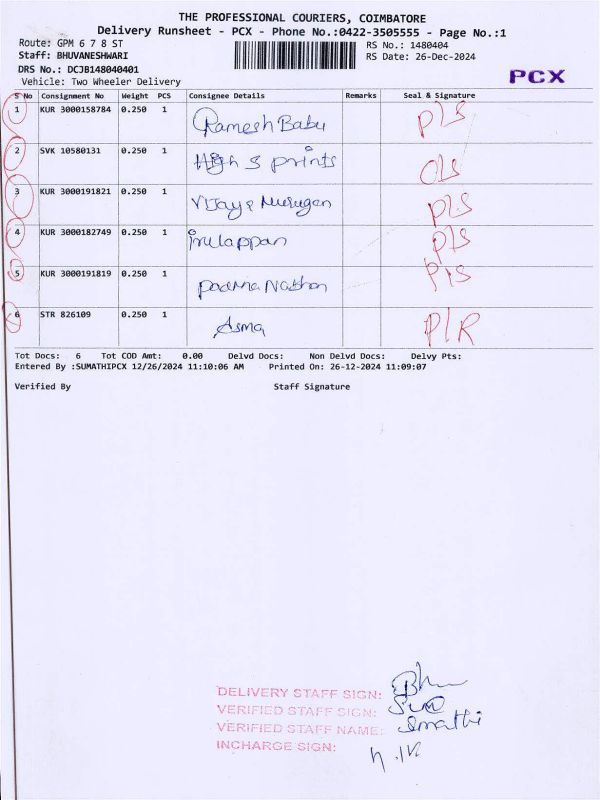 THE PROFESSIONAL COURIERS, COIMBATORE
Delivery Runsheet - PCX - Phone No.:0422-3505555 - Page No.:1
Route: GPM 6 7 8 ST
RS No.: 1480404
Staff: BHUVANESHWARI
RS Date: 26-Dec-2024
DRS No.: DCJB148040401
Vehicle: Two Wheeler Delivery
PCX
S No Consignment No Weight PCS Consignee Details Remarks Seal & Signature
1 KUR 3000158784 0.250 1 Ramesh Babu P/S
2 SVK 10580131 0.250 1 High S prints O/S
3 KUR 3000191821 0.250 1 Vijaya Murugan P/S
4 KUR 3000182749 0.250 1 irulappan P/S
5 KUR 3000191819 0.250 1 Padma Nathan P/S
6 STR 826109 0.250 1 Asma P/R
Tot Docs: 6 Tot COD Amt: 0.00 Delvd Docs: Non Delvd Docs: Delvy Pts:
Entered By :SUMATHIPCX 12/26/2024 11:10:06 AM Printed On: 26-12-2024 11:09:07
Verified By Staff Signature
DELIVERY STAFF SIGN:
VERIFIED STAFF SIGN:
VERIFIED STAFF NAME:
INCHARGE SIGN: